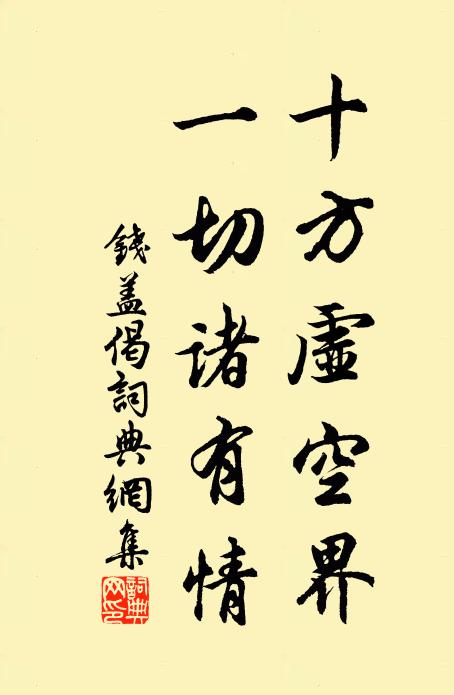 十方虛空界
一切諸有情
錢蓋偈詞典網集
詞典網印